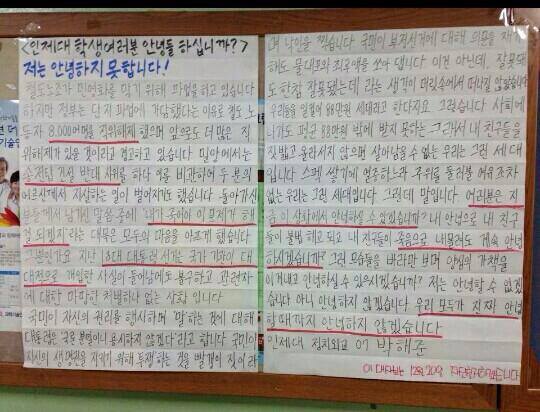 <인제대 학생여러분 안녕들 하십니까?>
저는 안녕하지 못합니다!
철도노조가 민영화를 막기 위해 파업을 하고 있습니다
하지만 정부는 단지 파업에 가담했다는 이유로 철도 노
동자 8,000여명을 직위해제 했으며 앞으로도 더 많은 직
위해제가 있을 것이라고 경고하고 있습니다 밀양에서는
송전탑 건설 반대 시위를 하다 몇몇 비관하여 두 분의
어르신께서 자살하시는 일이 벌어지기도 했습니다 돌아가신
분들께서 남기신 말씀 중에 '내가 죽어야 이 문제가 해
결 되겠지'라는 대목은 모두의 마음을 아프게 했습니다
그뿐인가요 지난 18대 대통령 선거는 국가기관이 대
대적으로 개입한 사실이 드러남에도 불구하고 관련자
에 대한 마땅한 처벌하나 없는 사회입니다
국민이 자신의 권리를 행사하며 '말'하는 것에 대해
대통령은 '국론분열이니 용서하지 않겠다'라고 합니다 국민이
자신의 생명권을 지키기 위해 투쟁하는 것을 빨갱이 짓이라
며 낙인을 찍습니다 국민이 부정선거에 대해 의문을 제기
해도 물대포와 최루액을 쏘아 댑니다 이건 아닌데, 잘못돼
도 한참 잘못됐는데 라는 생각이 머릿속에서 떠나질 않았습니다
우리들을 일컬어 88만원 세대라고 한다지요 그렇습니다 사회에
나가도 평균 88만원 밖에 받지 못하는 그래서 내 친구들을
짓밟고 올라서지 않으면 살아남을 수 없는 우리는 그런 세대
입니다 스펙 쌓기에 열중하느라 주위를 둘러볼 여유조차
없는 우리는 그런 세대입니다 그런데 말입니다 여러분은 지
금 이 상태에서 안녕하실 수 있겠습니까? 내 안녕으로 내 친구
들이 불법 해고되고 내 친구들이 죽음으로 내몰려도 계속 안녕
하시겠습니까? 그런 모습들을 바라만 보며 양심의 가책을
이겨내고 안녕하실 수 있으시겠습니까? 저는 안녕할 수 없겠
습니다 아니 안녕하지 않겠습니다 우리 모두가 진짜 안녕
할 때까지 안녕하지 않겠습니다
인제대 정치외교 07 박해준
이 대자보는 12월 20일 자진철거하겠습니다